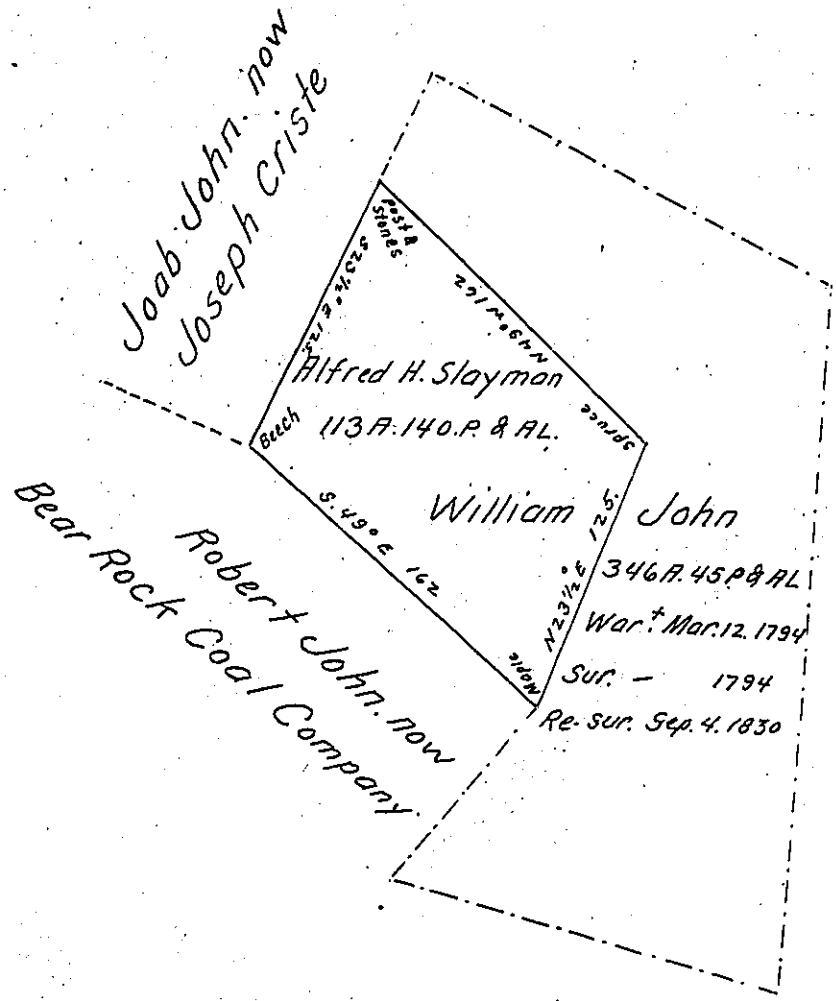 Joab John. now
Joseph Criste
Post &
Stones
S23½° E 125.
N49° W 162
Alfred H. Slayman
113 A. 140. P. & AL.
Beech
Spruce
S. 49° E 162
William John
N23½° E 125.
346 A. 45 P & AL
War.t Mar. 12. 1794
Sur. - 1794
Re-sur. Sep. 4. 1830
Maple
Robert John. now
Bear Rock Coal Company.